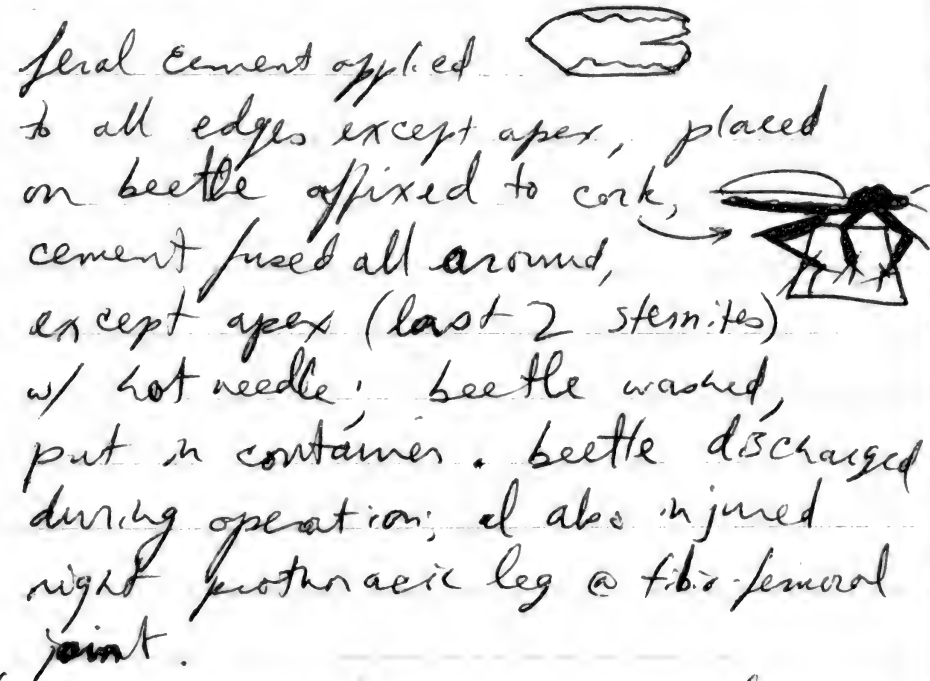 feral cement applied
to all edges except apex, placed
on beetle affixed to cork,
cement fused all around,
except apex (last 2 sternites)
w/ hot needle; beetle washed,
put in container. beetle discharged
during operation; I also injured
right prothoracic leg @ tibio-femoral
joint.